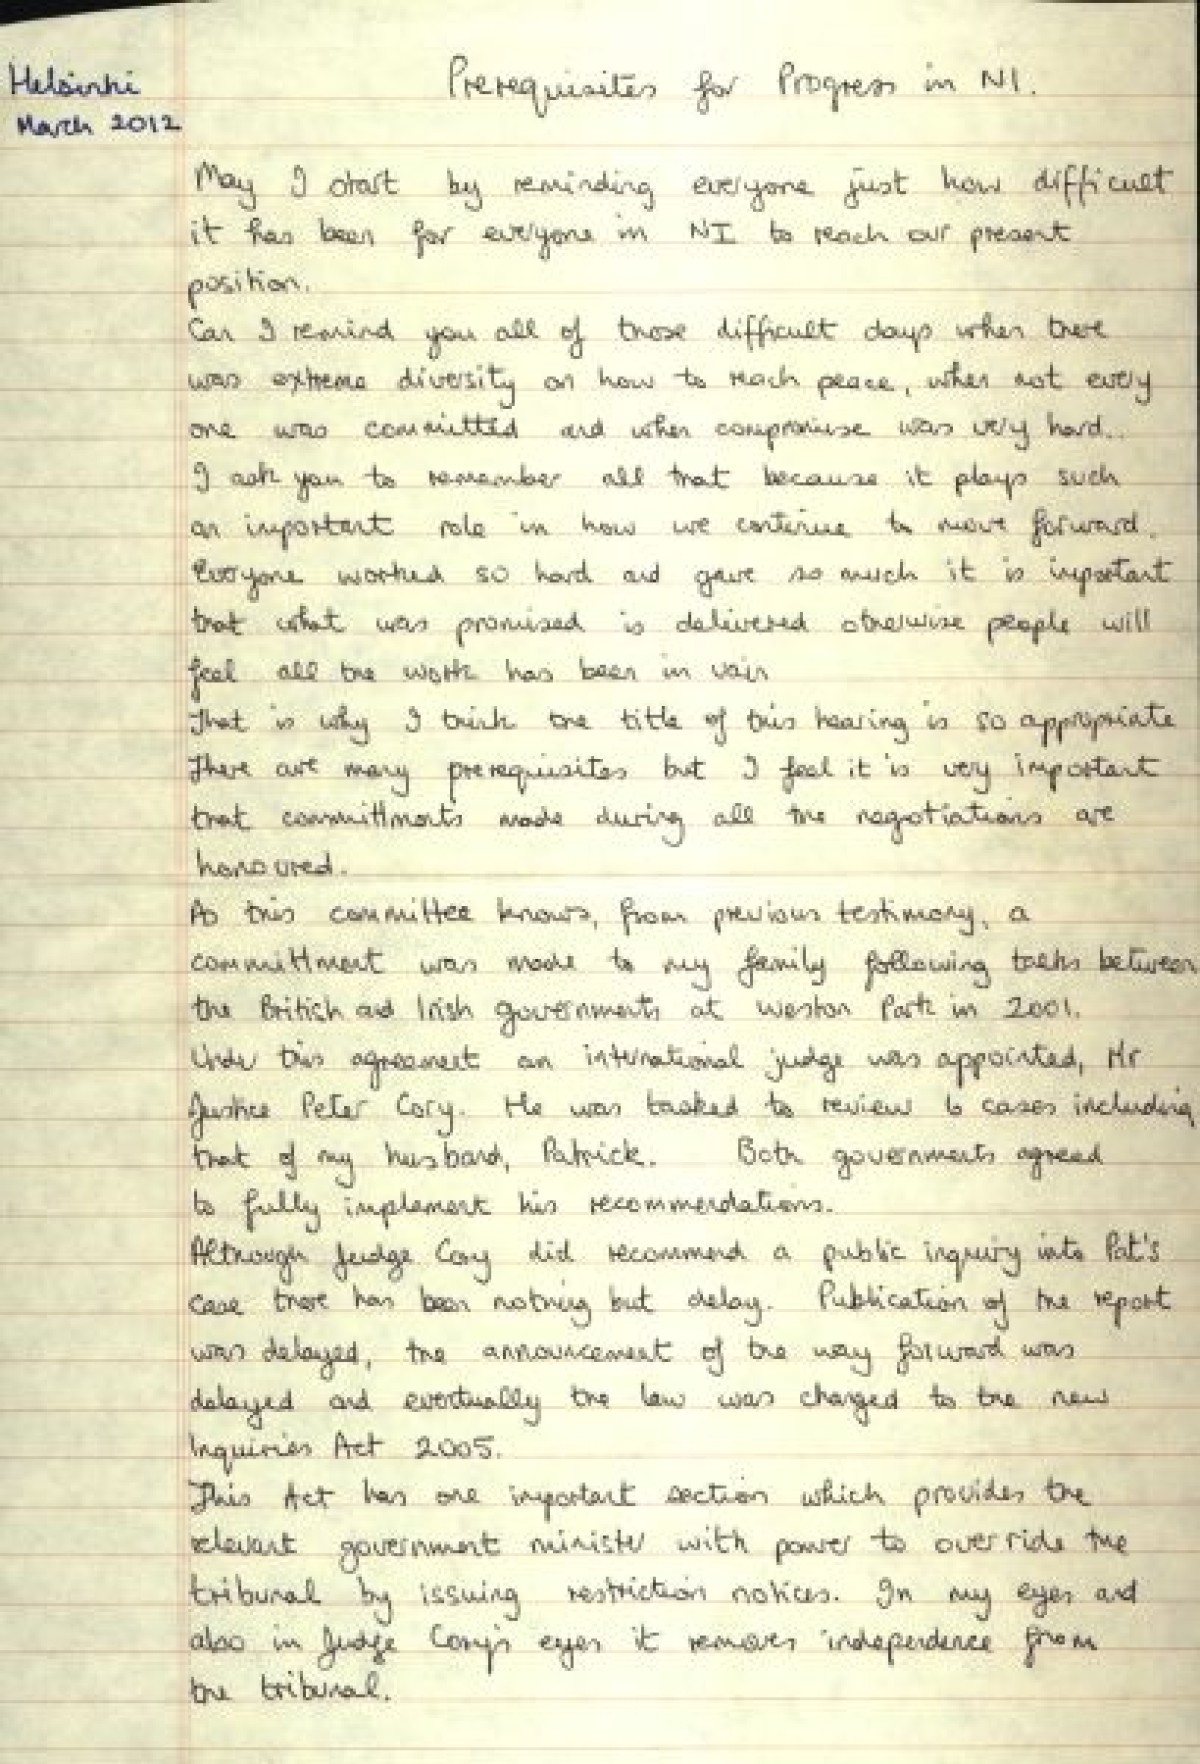 Helsinki
March 2012
Prerequisites for Progress in NI.
May I start by reminding everyone just how difficult
it has been for everyone in NI to reach our present
position.
Can I remind you all of those difficult days when there
was extreme diversity on how to reach peace, when not every
one was committed and when compromise was very hard..
I ask you to remember all that because it plays such
an important role in how we continue to move forward.
Everyone worked so hard and gave so much it is important
that what was promised is delivered otherwise people will
feel all the work has been in vain
That is why I think the title of this hearing is so appropriate
There are many prerequisites but I feel it is very important
that committments made during all the negotiations are
honoured.
As this committee knows, from previous testimony, a
committment was made to my family following talks between
the British and Irish governments at Weston Park in 2001.
Under this agreement an international judge was appointed, Mr
Justice Peter Cory. He was tasked to review 6 cases including
that of my husband, Patrick. Both governments agreed
to fully implement his recommendations.
Although Judge Cory did recommend a public inquiry into Pat's
case there has been nothing but delay. Publication of the report
was delayed, the announcement of the way forward was
delayed and eventually the law was changed to the new
Inquiries Act 2005.
This Act has one important section which provides the
relevant government minister with power to override the
tribunal by issuing restriction notices. In my eyes and
also in Judge Cory's eyes it removes independence from
the tribunal.